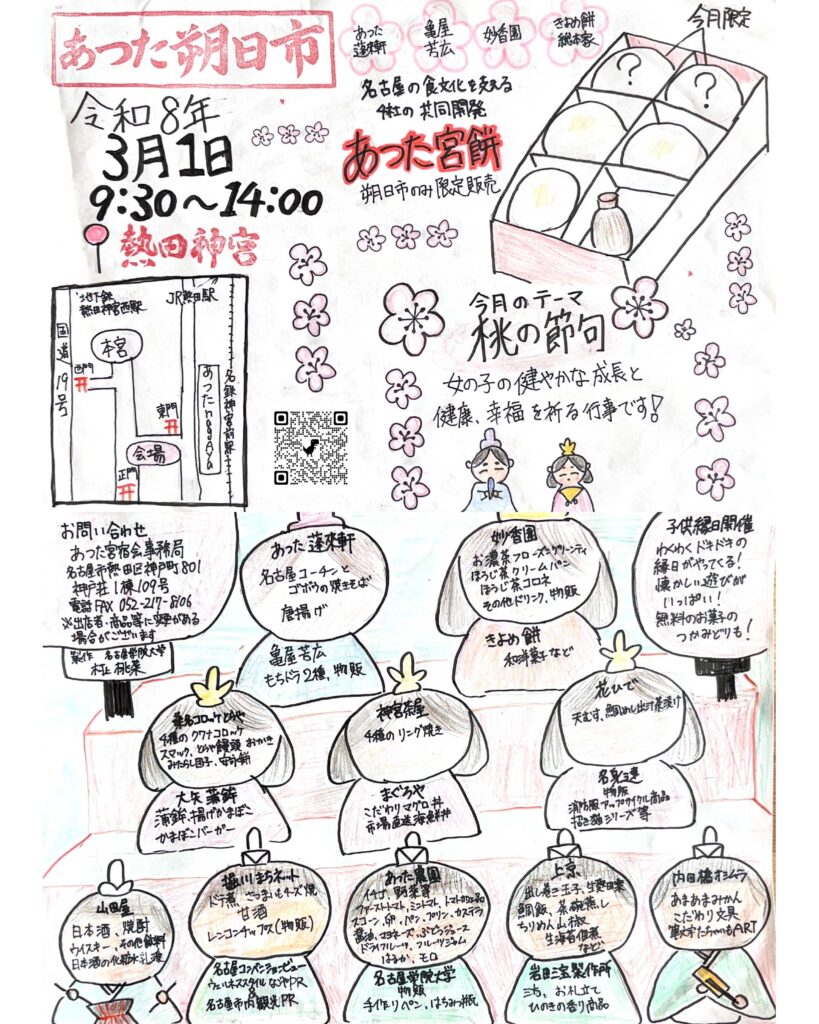 あつた朔日市
令和8年
3月1日
9:30〜14:00
熱田神宮
あつた
蓬莱軒
亀屋
芳広
妙香園
きよめ餅
総本家
名古屋の食文化を支える
4社の共同開発
あつた宮餅
朔日市のみ限定販売
今月限定
?
?
地下鉄
熱田神宮西駅
JR熱田駅
国道19号
本宮
西門
東門
会場
正門
あつたnagAya
名鉄神宮前駅
今月のテーマ
桃の節句
女の子の健やかな成長と
健康、幸福を祈る行事です!
お問い合わせ
あつた宮宿会事務局
名古屋市熱田区神戸町801
神戸荘1棟109号
電話FAX 052-217-8106
※出店者・商品等に変更がある
場合がございます
製作 名古屋学院大学
あつた蓬莱軒
名古屋コーチンと
ゴボウの焼きそば
唐揚げ
亀屋芳広
もちドラ2種、物販
妙香園
お濃茶フローズングリーンティ
ほうじ茶クリームパン
ほうじ茶コロネ
その他ドリンク、物販
きよめ餅
和洋菓子など
子供縁日開催
わくわくドキドキの
縁日がやってくる!
懐かしい遊びが
いっぱい!
無料のお菓子の
つかみどりも!
桑名コロッケとらや
4種のクワナコロッケ
スマック、とらや饅頭 おかき
みたらし団子、安永餅
大矢蒲鉾
蒲鉾、揚げかまぼこ
かまぼこバーガー
神宮茶屋
4種のリング焼き
まぐろや
こだわりマグロ丼
市場直送海鮮丼
花ひで
天むす、鯛めし出汁茶漬け
物販
消防服アップサイクル商品
招き猫シリーズ等
山田屋
日本酒、焼酎
ウイスキー、その他飲料
日本酒の化粧水乳液
堀川まちネット
ドラ焼、さつまいもチーズ焼
甘酒
レンコンチップス(物販)
名古屋コンベンションビュー
ウェルネススタイルなごやPR
&
名古屋市内観光PR
あつた農園
イチゴ、野菜等
ファーストトマト、ミニトマト、トマト加工品
スコーン、卵、パン、プリン、カステラ
醤油、マヨネーズ、ぶどうジュース
ドライフルーツ、フルーツジャム
はるか、モロ
名古屋学院大学
物販
手作りペン、はちみつ瓶
上京
出し巻き玉子、生麩田楽
鯛飯、茶碗蒸し
ちりめん山椒
生海苔佃煮
など
岩田三宝製作所
三方、お札立て
ひのきの香り商品
内田橋オシムラ
あまあまみかん
こだわり文具
筆文字たちゃいもART